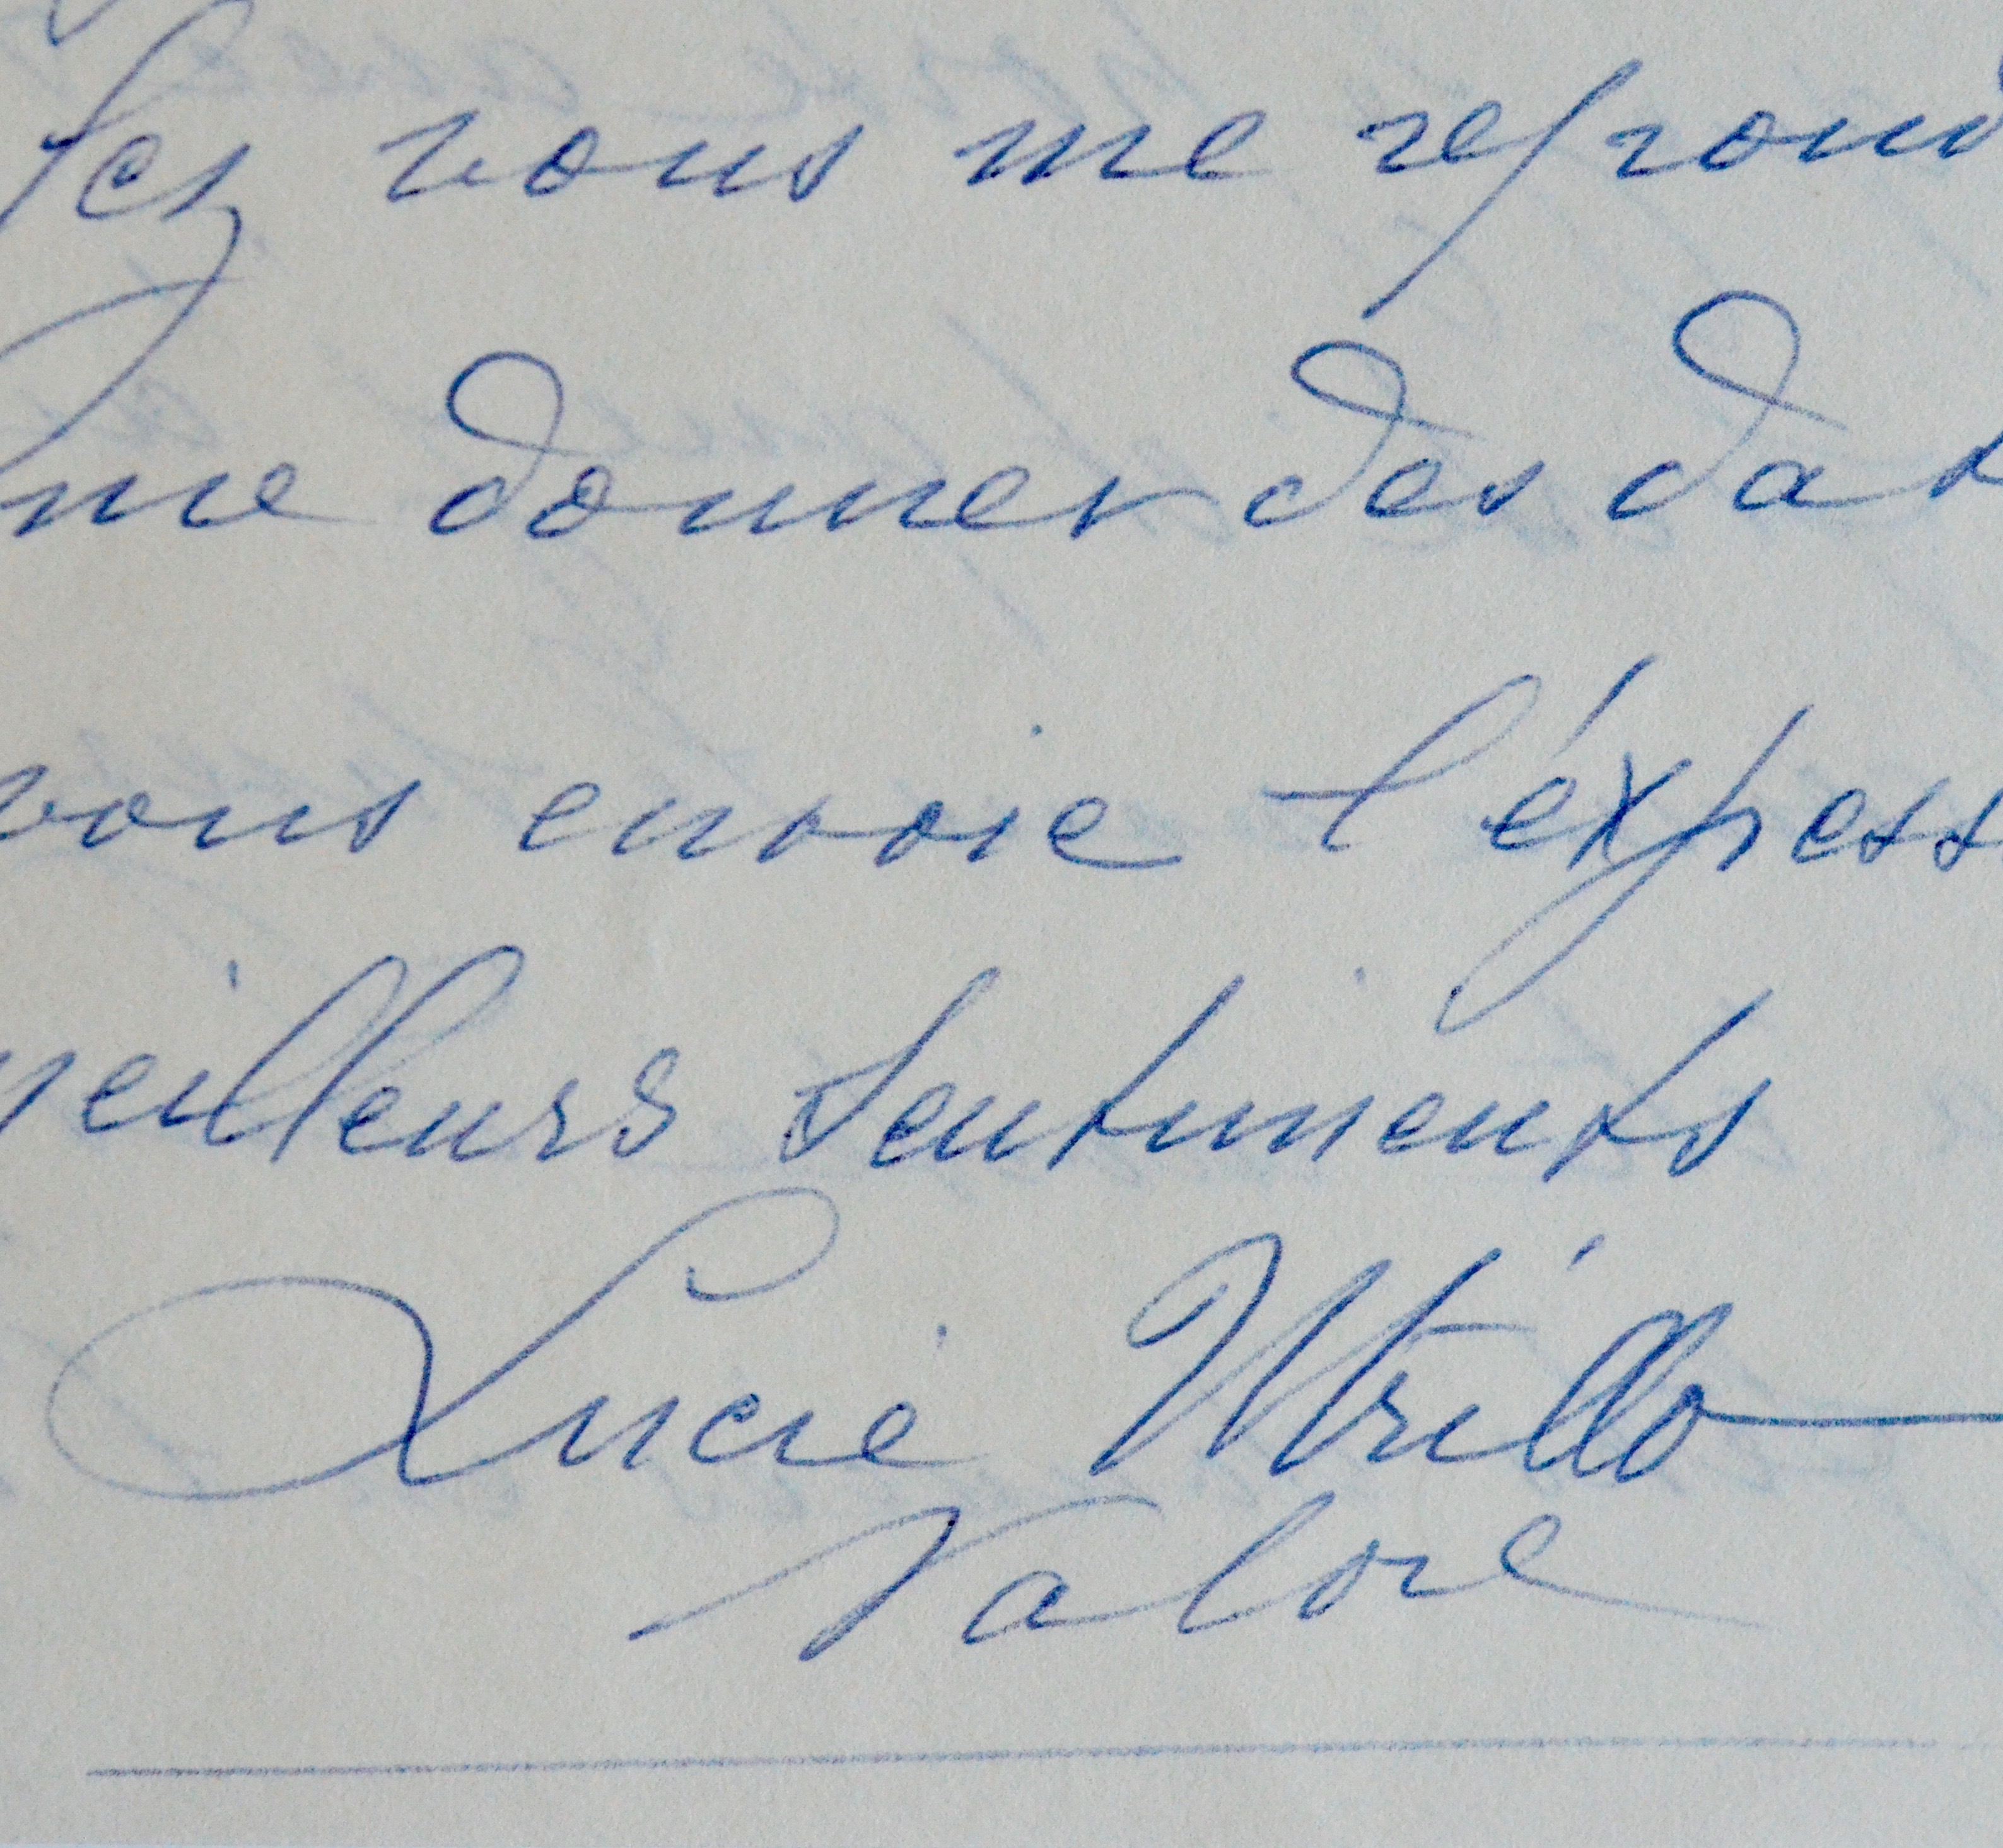 vous me repond
me donner des dat
vous envoie l'éxpress
meilleurs sentiments
Lucie Utrillo
Valore